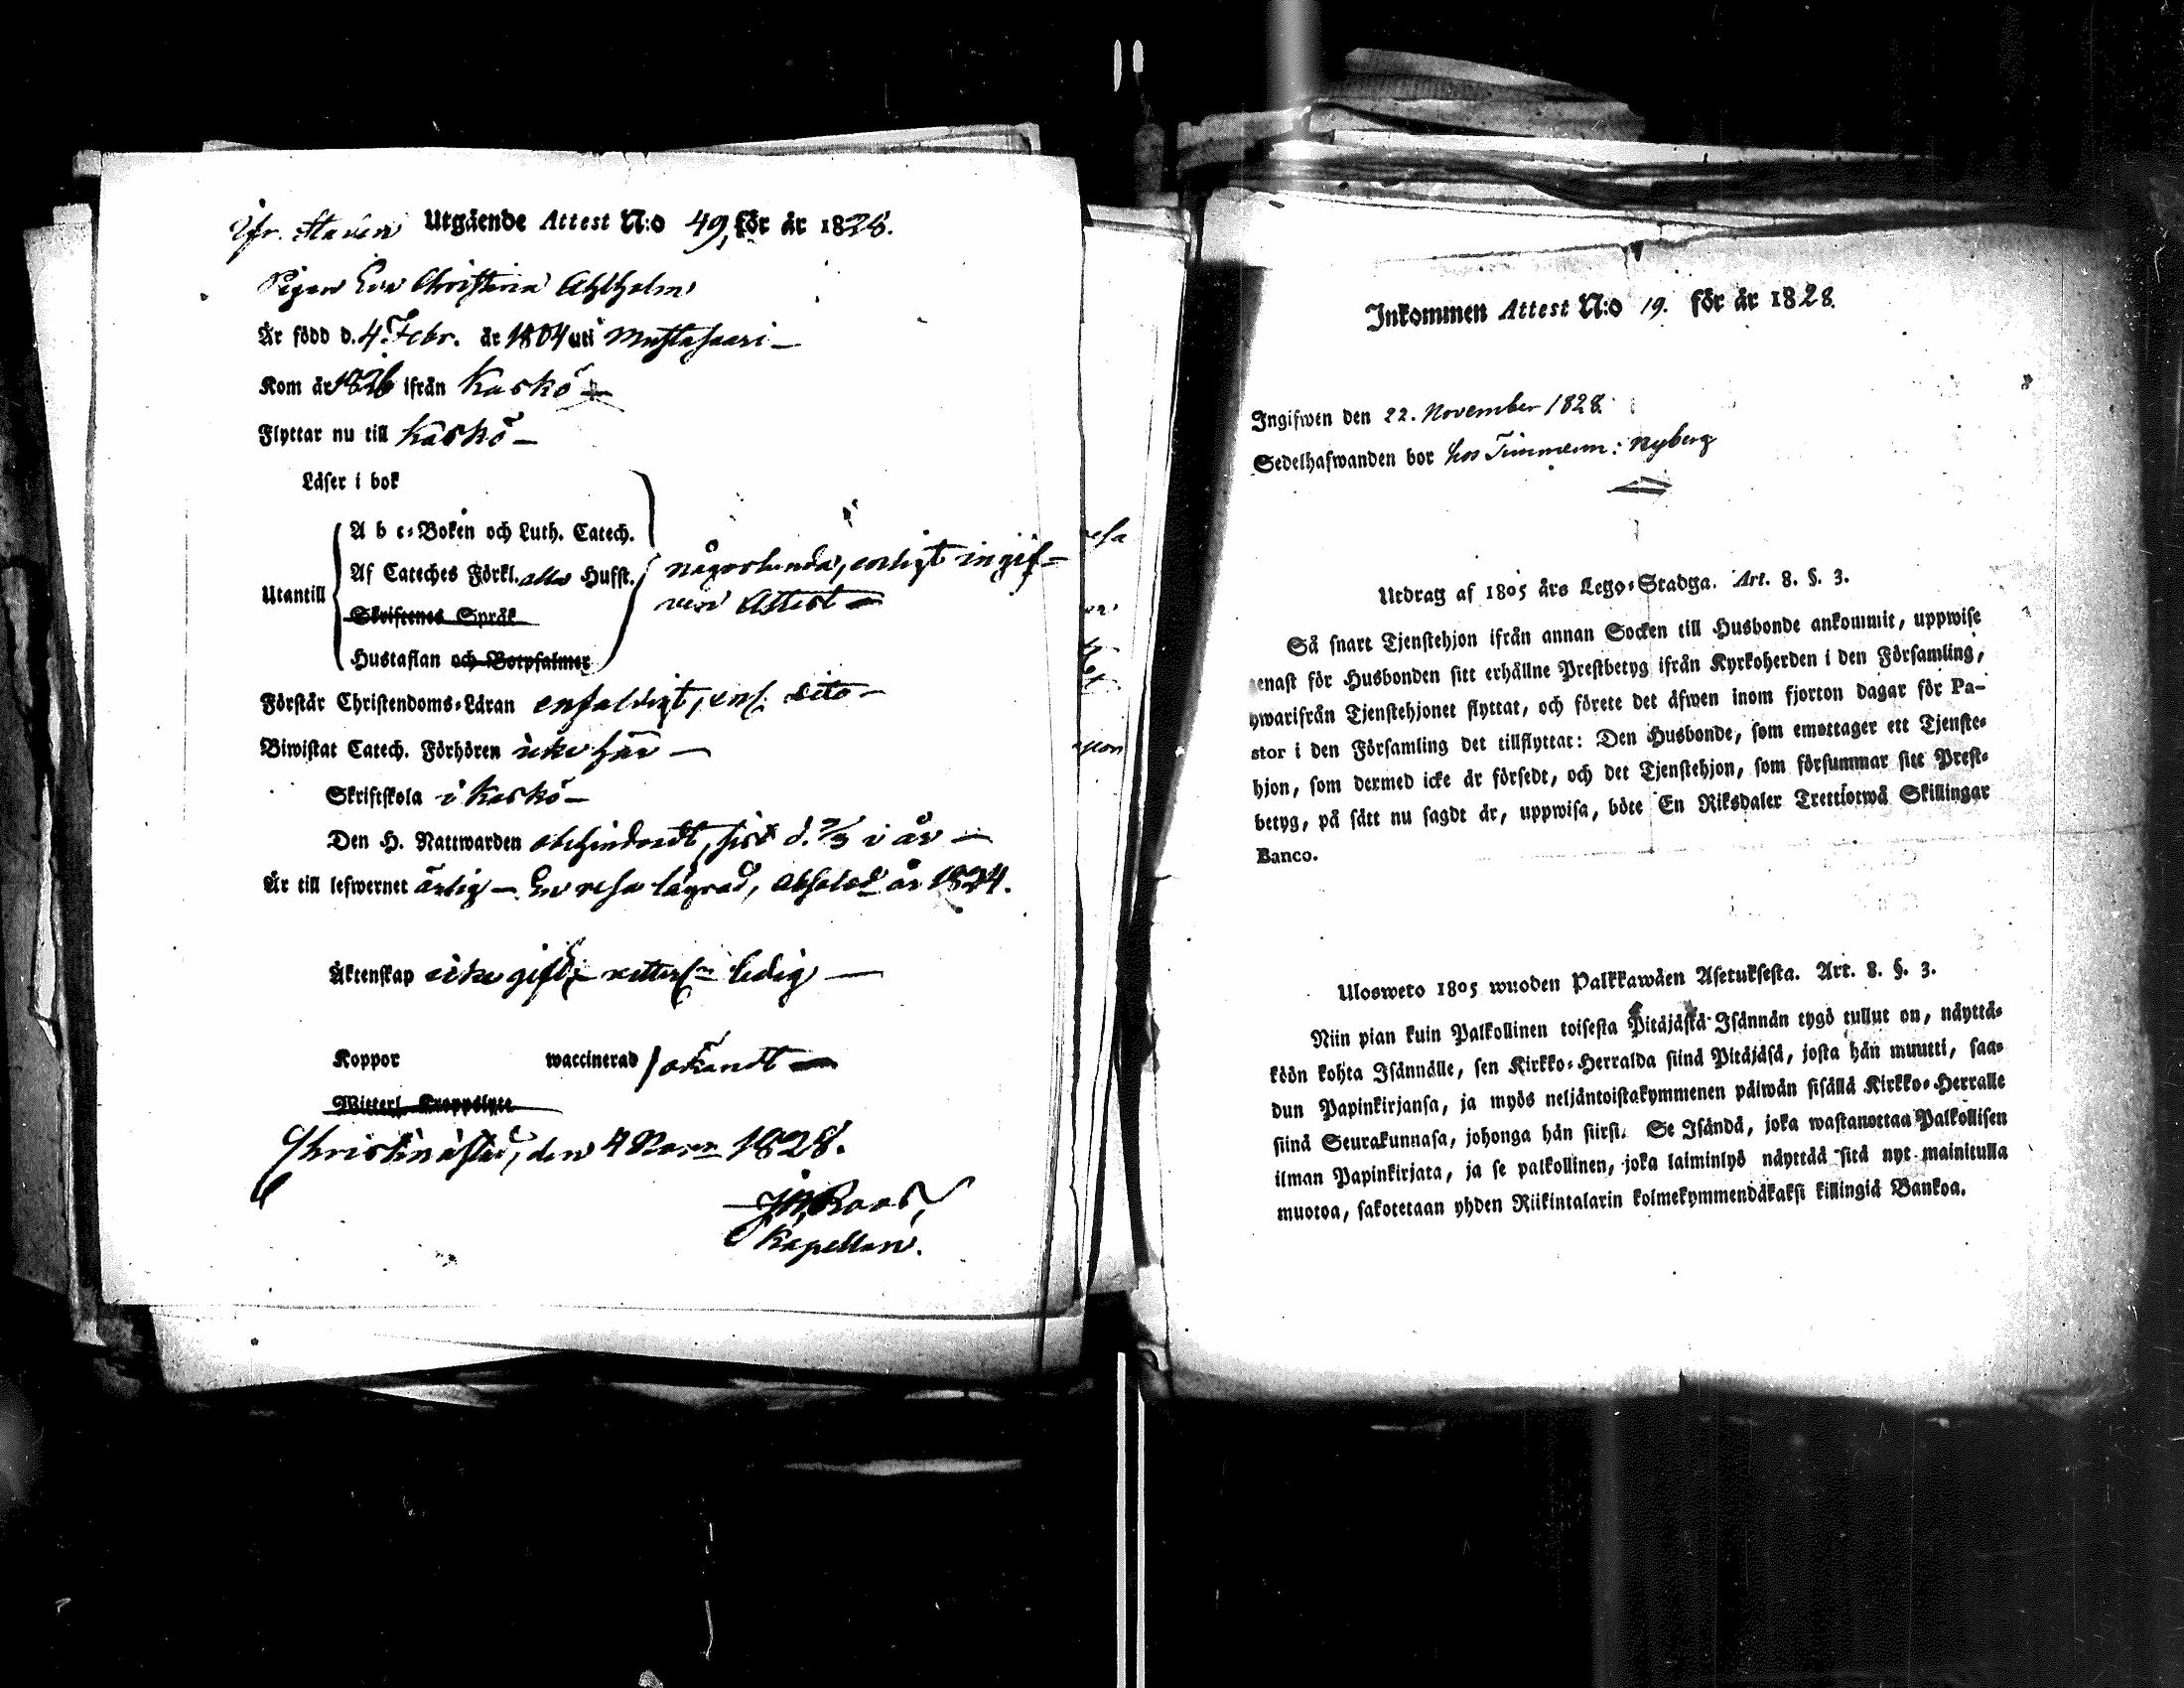 Utgående Attest N:o 49, för år 1828.
Pigan Eva Christina Ahlholm
Är född d. 4 Febr. år 1804 uti Mustasaari –
Kom år 1826 ifrån Kaskö –
Flyttar nu till Kaskö –
Läser i bok
A b c-Boken och Luth. Catech.
någorlunda, enligt ingif-
Af Cateches Förkl. Husst.
ven Attest –
Utantill
Skriftenes Språk
Hustaflan och Botpsalmer
Förstår Christendoms-Läran enfaldigt, enl. dito –
Biwistat Catech. Förhören icke här –
Skriftskola i Kaskö –
Den H. Nattwarden obehindradt, sist d. i år –
Är till lefwernet ärlig – En resa lägrad, absolvd år 1824.
Äktenskap icke gift, ledig –
Koppor waccinerad } okändt –
Witterl. Kroppslyte
Christinæstad, den 4 Novr 1828.
Roos,
Kapellan.
Inkommen Attest N:o 19. för år 1828.
Ingifwen den 22. November 1828.
Sedelhafwanden bor hos Timmerm: Nyberg
Utdrag af 1805 års Lego-Stadga. Art. 8. §. 3.
Så snart Tjenstehjon ifrån annan Socken till Husbonde ankommit, uppwise
genast för Husbonden sitt erhållne Prestbetyg ifrån Kyrkoherden i den Församling,
hwarifrån Tjenstehjonet flyttat, och förete det äfwen inom fjorton dagar för Pa-
stor i den Församling det tillflyttat: Den Husbonde, som emottager ett Tjenste-
hjon, som dermed icke är försedt, och det Tjenstehjon, som försummar sitt Prest-
betyg, på sätt nu sagdt är, uppwisa, böte En Riksdaler Trettiotwå Skillingar
Banco.
Ulosweto 1805 wuoden Palkkawäen Asetuksesta. Art. 8. §. 3.
Niin pian kuin Palkollinen toisesta Pitäjästä Isännän tygö tullut on, näyttä-
köön kohta Isännälle, sen Kirkko-Herralda siinä Pitäjäsä, josta hän muutti, saa-
dun Papinkirjansa, ja myös neljäntoistakymmenen päiwän sisällä Kirkko-Herralle
siinä Seurakunnasa, johonga hän siirsi. Se Isändä, joka wastanottaa Palkollisen
ilman Papinkirjata, ja se palkollinen, joka laiminlyö näyttää sitä nyt mainitulla
muotoa, sakotetaan yhden Riikintalarin kolmekymmendäkaksi killingiä Bankoa.